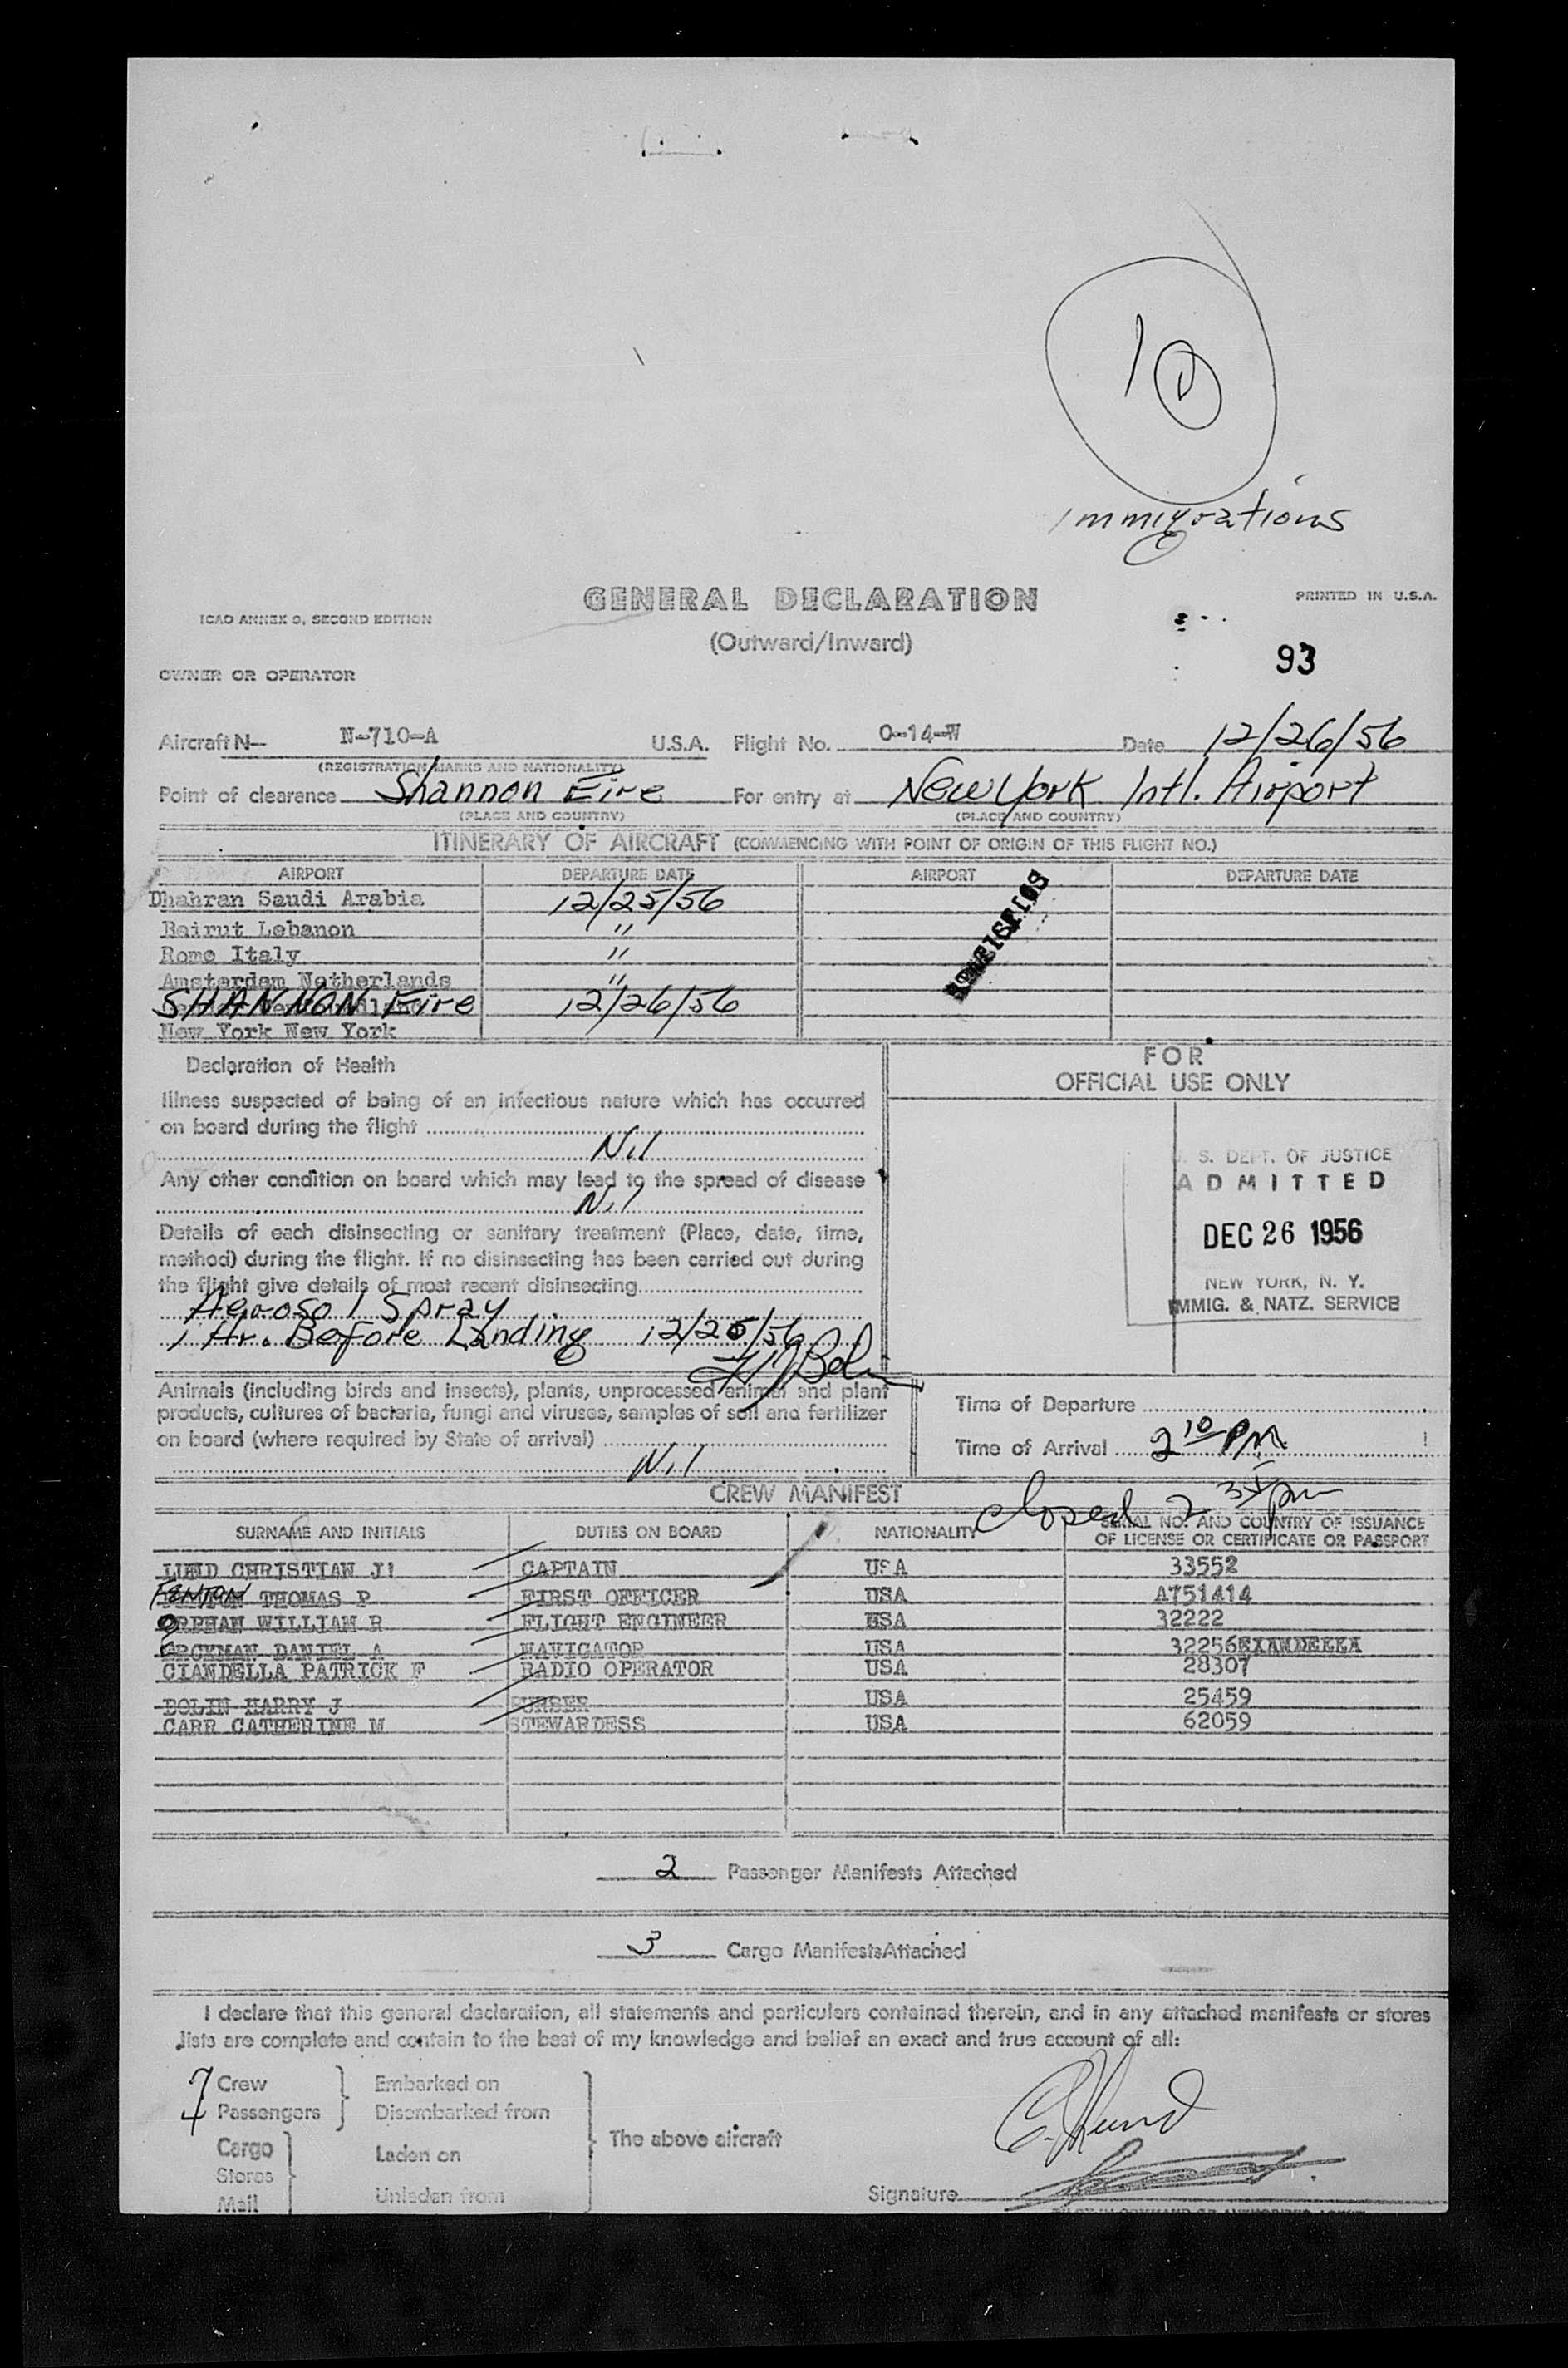 10
Immigrations
GENERAL DECLARATION
PRINTED IN U.S.A.
ICAO ANNEX 9, SECOND EDITION
(Outward/Inward)
93
OWNER OR OPERATOR
Aircraft N— N-710-A U.S.A. Flight No. 0-14-W Date 12/26/56
(REGISTRATION MARKS AND NATIONALITY)
Point of clearance Shannon Eire For entry at New York Intl. Airport
(PLACE AND COUNTRY) (PLACE AND COUNTRY)
ITINERARY OF AIRCRAFT (COMMENCING WITH POINT OF ORIGIN OF THIS FLIGHT NO.)
AIRPORT DEPARTURE DATE AIRPORT DEPARTURE DATE
Dhahran Saudi Arabia 12/25/56
Beirut Lebanon "
Rome Italy "
Amsterdam Netherlands "
SHANNON Eire 12/26/56
New York New York
Declaration of Health
FOR
OFFICIAL USE ONLY
Illness suspected of being of an infectious nature which has occurred
on board during the flight
Nil
Any other condition on board which may lead to the spread of disease
Nil
Details of each disinsecting or sanitary treatment (Place, date, time,
method) during the flight. If no disinsecting has been carried out during
the flight give details of most recent disinsecting
Aerosol Spray
1 Hr. Before Landing 12/26/56
U. S. DEPT. OF JUSTICE
ADMITTED
DEC 26 1956
NEW YORK, N. Y.
IMMIG. & NATZ. SERVICE
Animals (including birds and insects), plants, unprocessed animal and plant
products, cultures of bacteria, fungi and viruses, samples of soil and fertilizer
on board (where required by State of arrival)
Nil
Time of Departure
Time of Arrival 2 10 PM
closed 2 35 pm
CREW MANIFEST
SURNAME AND INITIALS DUTIES ON BOARD NATIONALITY SERIAL NO. AND COUNTRY OF ISSUANCE
OF LICENSE OR CERTIFICATE OR PASSPORT
LUND CHRISTIAN J CAPTAIN USA 33552
FENTON THOMAS P FIRST OFFICER USA A751414
ORPHAN WILLIAM R FLIGHT ENGINEER USA 32222
DANIEL A NAVIGATOR USA 32256
CIANDELLA PATRICK F RADIO OPERATOR USA 28307
BOLIN HARRY J PURSER USA 25459
CARR CATHERINE M STEWARDESS USA 62059
2 Passenger Manifests Attached
3 Cargo Manifests Attached
I declare that this general declaration, all statements and particulars contained therein, and in any attached manifests or stores
lists are complete and contain to the best of my knowledge and belief an exact and true account of all:
7 Crew Embarked on
4 Passengers Disembarked from
The above aircraft
Cargo Laden on
Stores
Mail Unladen from
Signature